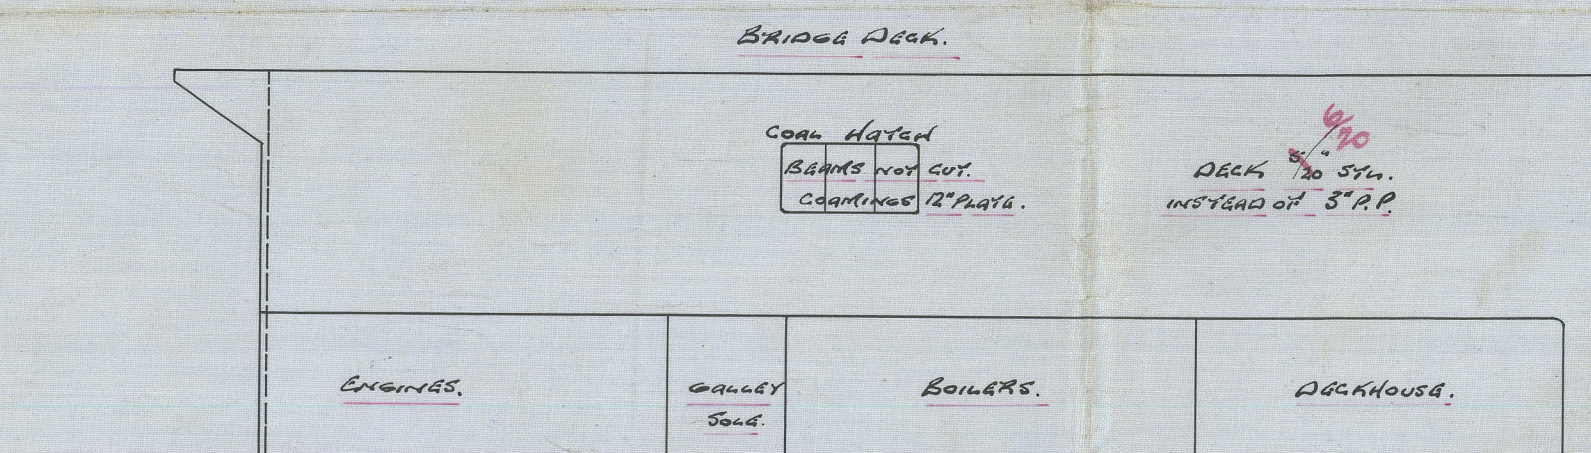 BRIDGE DECK.
COAL HATCH
BEAMS NOT CUT.
COAMINGS 12" PLATE.
6/20
DECK 5/20" STL.
INSTEAD OF 3" P.P.
ENGINES.
GALLEY
SOLE.
BOILERS.
DECKHOUSE.